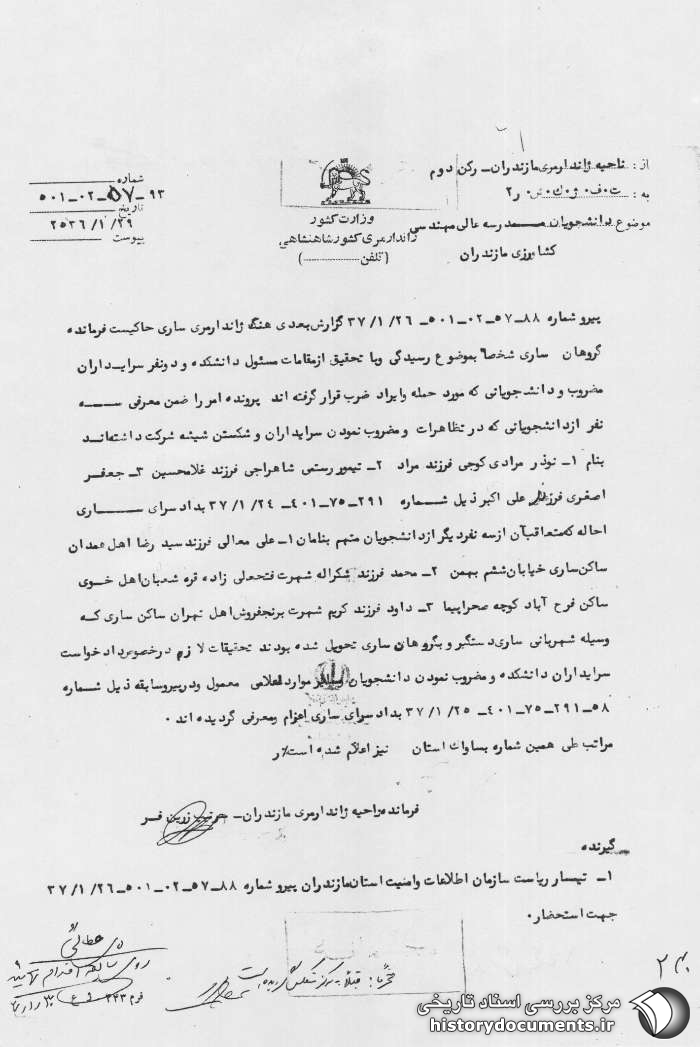 از : ناحیه ژاندارمری مازندران ـ رکن دوم
به : ت۰ف۰ ژ۰ك۰ش۰ ر۲
موضوع دانشجویان مدرسه عالی مهندسی
کشاورزی مازندران
وزارت کشور
ژاندارمری کشور شاهنشاهی
(تلفن ...............)
شماره
۵۰۱ـ۰۲ـ۵۷ـ۹۳
تاریخ
۲۵۳۶/۱/۲۹
پیوست
پیرو شماره ۸۸ـ۵۷ـ۰۲ـ۵۰۱ـ ۳۷/۱/۲۶ گزارش بعدی هنگ ژاندارمری ساری حاکیست فرمانده
گروهان ساری شخصا" بموضوع رسیدگی وبا تحقیق ازمقامات مسئول دانشکده و دونفر سرایـداران
مضروب و دانشجویانی که مورد حمله وایراد ضرب قرار گرفته اند پرونده امر را ضمن معرفی ســـه
نفر ازدانشجویانی که در تظاهرات ومضروب نمودن سرایداران و شکستن شیشه شرکت داشته‌انـد
بنام ۱ـ نوذر مرادی کوچی فرزند مراد ۲ـ تیمور رستمی شاهراجی فرزند غلامحسین ۳ـ جعفـر
اصغری فرزند علی اکبر ذیل شــماره ۲۹۱ـ۷۵ـ۴۰۱ـ ۳۷/۱/۲۴ بداد سرای ســـــاری
احاله که متعاقب آن ازسه نفر دیگر ازدانشجویان متهم بنامان ۱ـ علی معالی فرزند سید رضا اهل همدان
ساکن ساری خیابان ششم بهمن ۲ـ محمد فرزند شکراله شهرت فتحعلی زاده قره شعبان اهل خـوی
ساکن فرح آباد کوچه صحراپیما ۳ـ داود فرزند کریم شهرت برنجفروش اهل تهران ساکن ساری کـه
وسیله شهربانی ساری دستگیر و بگروهان ساری تحویل شده بودند تحقیقات لازم درخصوص داد خواست
سرایداران دانشکده و مضروب نمودن دانشجویان وسایر موارد اعلامی معمول ودرپیروسابقه ذیل شــماره
۵۸ـ۲۹۱ـ۷۵ـ۴۰۱ـ ۳۷/۱/۲۵ بداد سرای ساری اعزام ومعرفی گردیده اند ۰
مراتب طی همین شماره بساواك استان نیز اعلام شده است٪ر
فرمانده ناحیه ژاندارمری مازندران ـ سرتیپ زرین فـر
گیرنده
۱ـ تیمسار ریاست سازمان اطلاعات وامنیت استان مازندران پیرو شماره ۸۸ـ۵۷ـ۰۲ـ۵۰۱ـ۳۷/۱/۲۶
جهت استحضار۰
مرکز بررسی اسناد تاریخی
historydocuments.ir